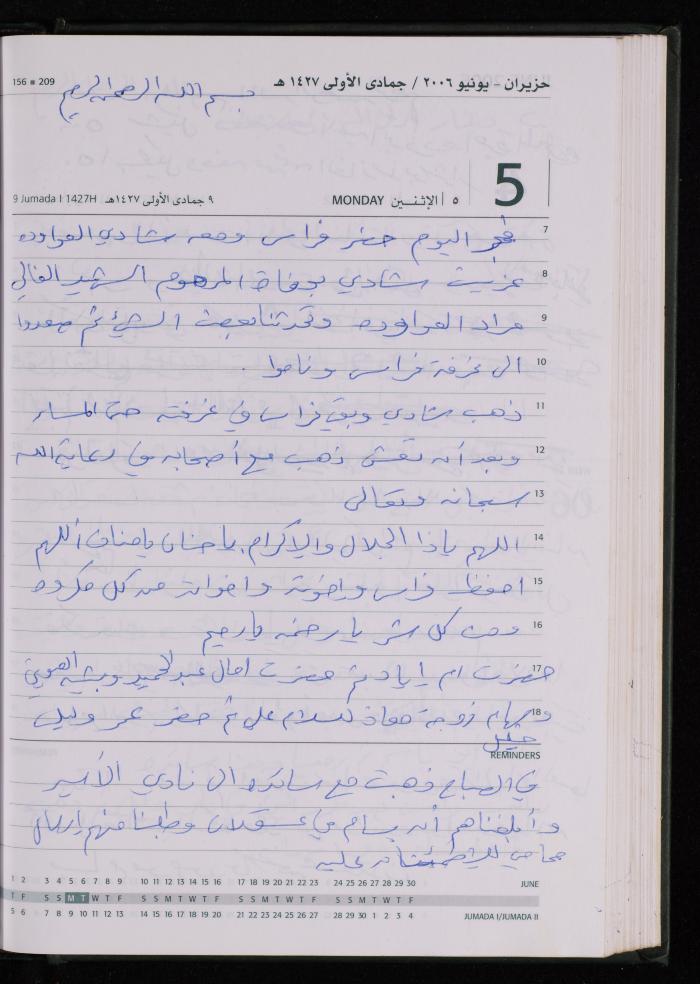 156 ■ 209
حزيران - يونيو ٢٠٠٦ / جمادى الأولى ١٤٢٧ هـ
بسم الله الرحمن الرحيم
9 Jumada I 1427H ٩ جمادى الأولى ١٤٢٧هـ
MONDAY الإثنـــين ٥
5
7 فجر اليوم حضر فراس ومعه شادي العواوده
8 عزيت شادي بوفاة المرحوم الشهيد الغالي
9 مراد العواوده وتحدثنا بعض الشيء ثم صعدوا
10 الى غرفة فراس وناموا .
11 ذهب شادي وبقي فراس في غرفته حتى المساء
12 وبعد أن تعشى ذهب مع أصحابه في رعاية الله
13 سبحانه وتعالى
14 اللهم ياذا الجلال والإكرام يا حنان يا منان اللهم
15 احفظ فراس وإخوته واخواته من كل مكروه
16 ومن كل شر يا رحمن يا رحيم
17 حضرت ام إياد ثم حضرت امال عبد الحميد وبشيه
18 وسهام زوجة معاذ للسلام علي ثم حضر عمر
خليل
REMINDERS
في الصباح ذهبت مع الى نادي الأسير
وأبلغناهم أن بسام في عسقلان وطلبنا منهم إرسال
محامي للإطمئنان عليه
1 2 3 4 5 6 7 8 9 10 11 12 13 14 15 16 17 18 19 20 21 22 23 24 25 26 27 28 29 30 JUNE
T F S S M T W T F S S M T W T F S S M T W T F S S M T W T F
5 6 7 8 9 10 11 12 13 14 15 16 17 18 19 20 21 22 23 24 25 26 27 28 29 30 1 2 3 4 JUMADA I/JUMADA II